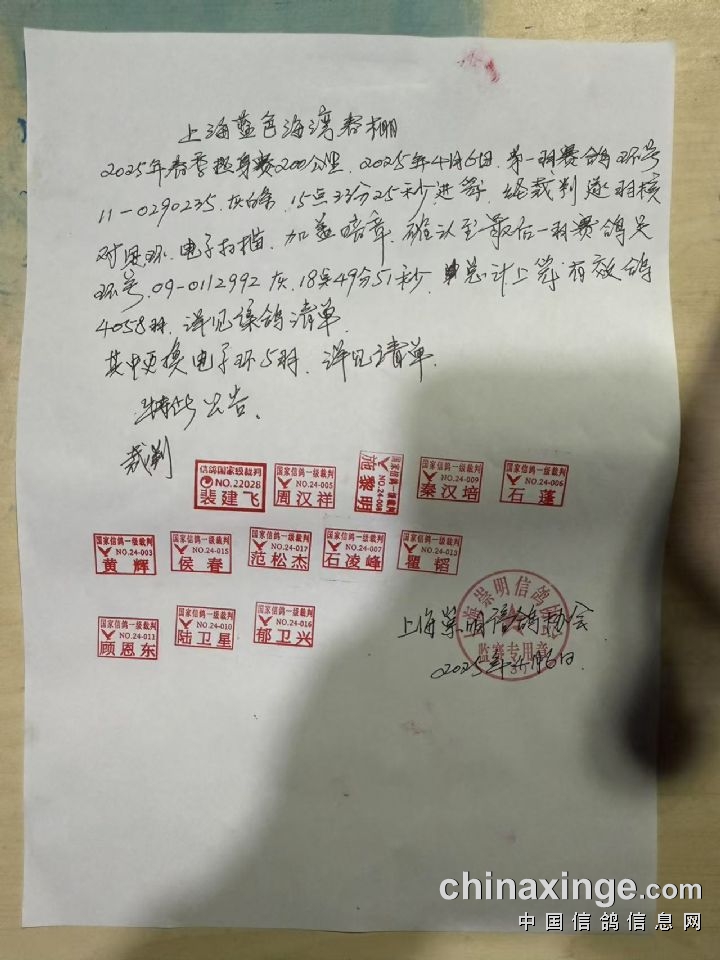 上海蓝色海湾春棚
2025年春季热身赛200公里，2025年4月6日，第一羽赛鸽环号
11-0290235，灰白条，15点33分25秒进笼，经裁判逐羽核
对足环，电子扫描，加盖暗章，确认至最后一羽赛鸽足
环号，09-0112992 灰，18点49分51秒，总计上笼有效鸽
4058羽，详见集鸽清单。
其中更换电子环5羽，详见清单。
特此公告。
裁判
信鸽国家级裁判
NO.22028
裴建飞
国家信鸽一级裁判
NO.24-005
周汉祥
国家信鸽一级裁判
NO.24-008
施黎明
国家信鸽一级裁判
NO.24-009
秦汉培
国家信鸽一级裁判
NO.24-006
石蓬
国家信鸽一级裁判
NO.24-003
黄辉
国家信鸽一级裁判
NO.24-015
侯春
国家信鸽一级裁判
NO.24-017
范松杰
国家信鸽一级裁判
NO.24-007
石凌峰
国家信鸽一级裁判
NO.24-013
瞿韬
国家信鸽一级裁判
NO.24-011
顾恩东
国家信鸽一级裁判
NO.24-010
陆卫星
国家信鸽一级裁判
NO.24-016
郁卫兴
上海崇明信鸽协会
崇明信鸽
监察专用章
2025年4月6日
chinaxinge.com
中国信鸽信息网